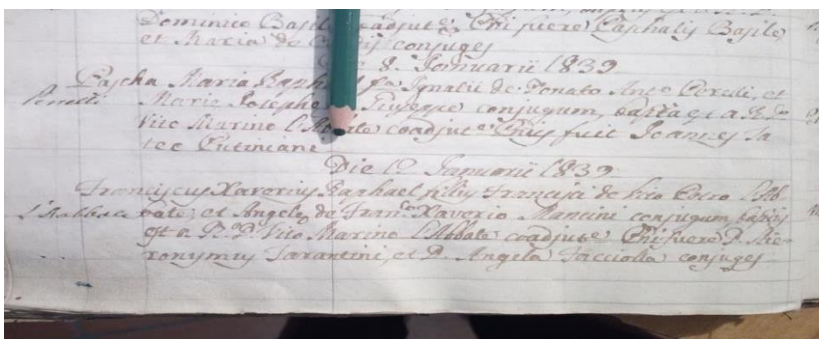 Dominico Basile coadjut.e Cni fuere Caphalis Basile
et Maria de conjuges
8. Januarii 1839
Pascha Maria Raph fa Ignatii de Donato Ant.o Peretti, et
Peretti Marie Josephe Giuseppe conjugum, bapta est a R. D.
Vito Marino l'Abbate coadjut.e Cnius fuit Joannes
Die 12 Januarii 1839
Franciscus Xaverius Raphael filius Francisci de Vito l'Ab
l'Abbate bate, et Angele de Fran.co Xaverio Mancini conjugum bapus
est a R. D. Vito Marino l'Abbate coadjut.e Cni fuere D. Hie-
ronymus Tarantini, et D. Angela Tacciolla conjuges